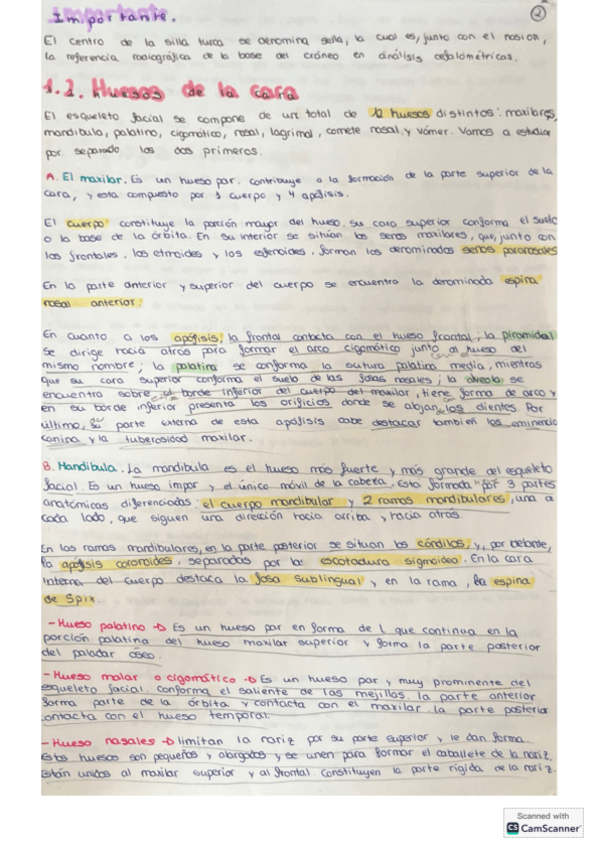 Importante.
2
El centro de la silla turca se denomina sella, la cual es, junto con el nasion,
la referencia radiográfica de la base del cráneo en análisis cefalométricas.
1.2. Huesos de la cara
El esqueleto facial se compone de un total de 12 huesos distintos: maxilares,
mandíbula, palatino, cigomático, nasal, lagrimal, cornete nasal y vómer. Vamos a estudiar
por separado los dos primeros.
A. El maxilar. Es un hueso par. contribuye a la formación de la parte superior de la
cara, y esta compuesto por 1 cuerpo y 4 apófisis.
El cuerpo constituye la porción mayor del hueso. su cara superior conforma el suelo
o la base de la órbita. En su interior se sitúan los senos maxilares, que, junto con
los frontales, los etmoides y los esfenoides, forman los denominados senos paranasales
En la parte anterior y superior del cuerpo se encuentra la denominada espina
nasal anterior.
En cuanto a los apófisis, la frontal contacta con el hueso frontal; la piramidal
se dirige hacia atras para formar el arco cigomático junto al hueso del
mismo nombre; la palatina se conforma la sutura palatina media, mientras
que su cara superior conforma el suelo de las fosas nasales; la alveola se
encuentra sobre el borde inferior del cuerpo del maxilar, tiene forma de arco y
en su borde inferior presenta los orificios donde se alojan los dientes. Por
último, su parte externa de esta apófisis cabe destacar también las eminencia
canina y la tuberosidad maxilar.
B. Mandíbula. La mandíbula es el hueso más fuerte y más grande del esqueleto
facial. Es un hueso impar y el único móvil de la cabeza. Esta formada por 3 partes
anatómicas diferenciadas: el cuerpo mandibular y 2 ramas mandibulares, una a
cada lado, que siguen una dirección hacia arriba y hacia atrás.
En las ramas mandibulares, en la parte posterior se sitúan los cóndilos, y, por delante,
la apófisis coronoides, separadas por la: escotadura sigmoidea. En la cara
interna del cuerpo destaca la fosa sublingual y en la rama, la espina
de Spix.
- Hueso palatino → Es un hueso par en forma de L que continua en la
porción palatina del hueso maxilar superior y forma la parte posterior
del paladar óseo.
- Hueso malar o cigomático → Es un hueso par y muy prominente del
esqueleto facial. conforma el saliente de las mejillas. la parte anterior
forma parte de la órbita y contacta con el maxilar. la parte posterior
contacta con el hueso temporal.
- Hueso nasales → limitan la nariz por su parte superior y le dan forma.
Estos huesos son pequeños y alargados y se unen para formar el caballete de la nariz.
Están unidos al maxilar superior y al frontal. Constituyen la parte rígida de la nariz.
Scanned with
CS CamScanner